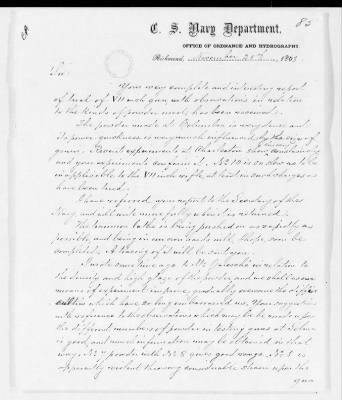 85
C. S. Navy Department.
OFFICE OF ORDNANCE AND HYDROGRAPHY
Richmond, November 28th 1863
Sir:
Your very complete and interesting report
of trial of VII inch gun with observations in relation
to the kinds of powder used, has been received.
The powder made at Columbia is very dense and
its power quickness is very much influenced by the size of
grain. Recent experiments at Charleston show conclusively
and your experiments confirm it. No 10 is on
inapplicable to the VII inch rifle, at least in such charges as
have been tried.
I have referred your report to the Secretary of the
Navy, and will write more fully when it is returned.
The lathe is being pushed on as rapidly as
possible, and being in our own hands will, I hope, soon be
completed. A tracing of it will be sent you.
I wrote some time ago to Mr Jaloncke in relation to
the density and high glaze of the powder, and we shall
means of experiment in piece, gradually overcome the
which have so long embarrassed us. Your suggestion
with reference to the observations which may be made upon
the different numbers of powder in testing guns at Selma
is good, and much information may be obtained in that
way. No 7 powder with No 8 gives good range. No 8 is
especially violent throwing considerable strain upon the
gun